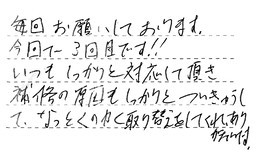 毎回お願いしております。
今回で3回目です!!
いつもしっかりと対応して頂き
補修の原因もしっかりとついきゅうし
て、なっとくのいく取り替えをしてくれ、あり
がたいです。